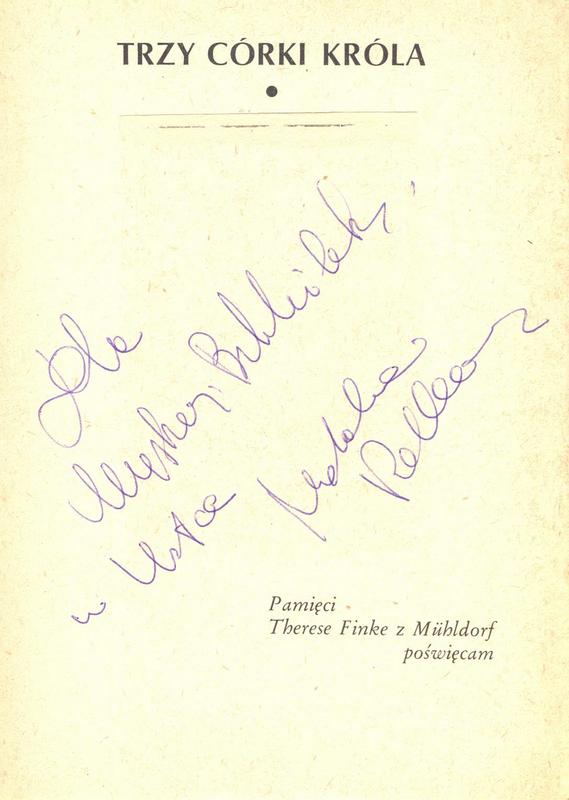 TRZY CÓRKI KRÓLA
Dla
Miejskiej Biblioteki
w Ustce
Natalia
Rolleczek
Pamięci
Therese Finke z Mühldorf
poświęcam